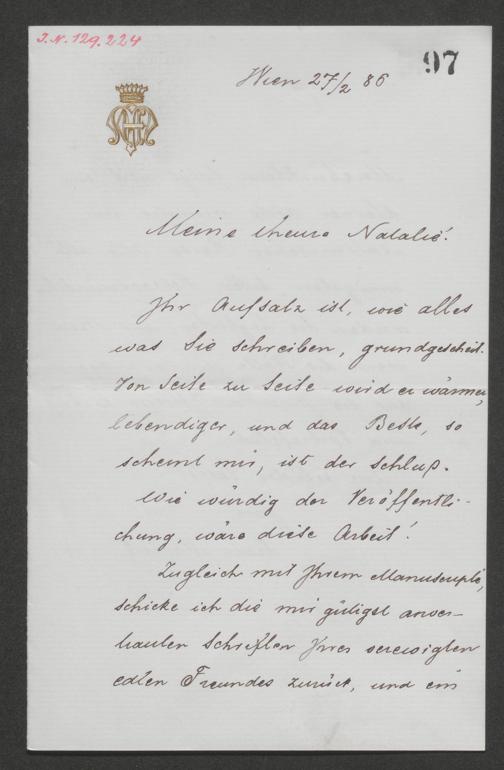 I.N. 129.224
97
Wien 27/2 86
Meine theure Natalie!
Ihr Aufsatz ist, wie alles
was Sie schreiben, grundgescheit.
Von Seite zu Seite wird er wärmer,
lebendiger, und das Beste, so
scheint mir, ist der Schluß.
Wie würdig der Veröffentli-
chung, wäre diese Arbeit!
Zugleich mit Ihrem Manuscripte,
schicke ich die mir gütigst anver-
trauten Schriften Ihres verewigten
edlen Freundes zurück, und ein